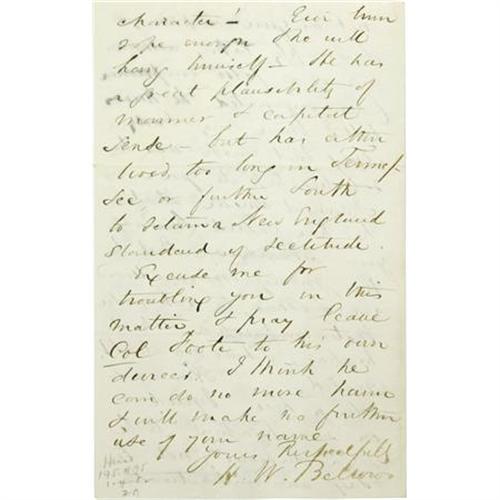 character! Give him
rope enough & he will
hang himself – He has
a great plausibility of
manner & capital
sense – but has either
lived too long in Tennes-
see or further South
to retain a New England
Standard of rectitude.
Excuse me for
troubling you in this
matter, & pray leave
Col Foote to his own
devices. I think he
can do no more harm
& will make no further
use of your name.
Yours Respectfully
H. W. Bellows